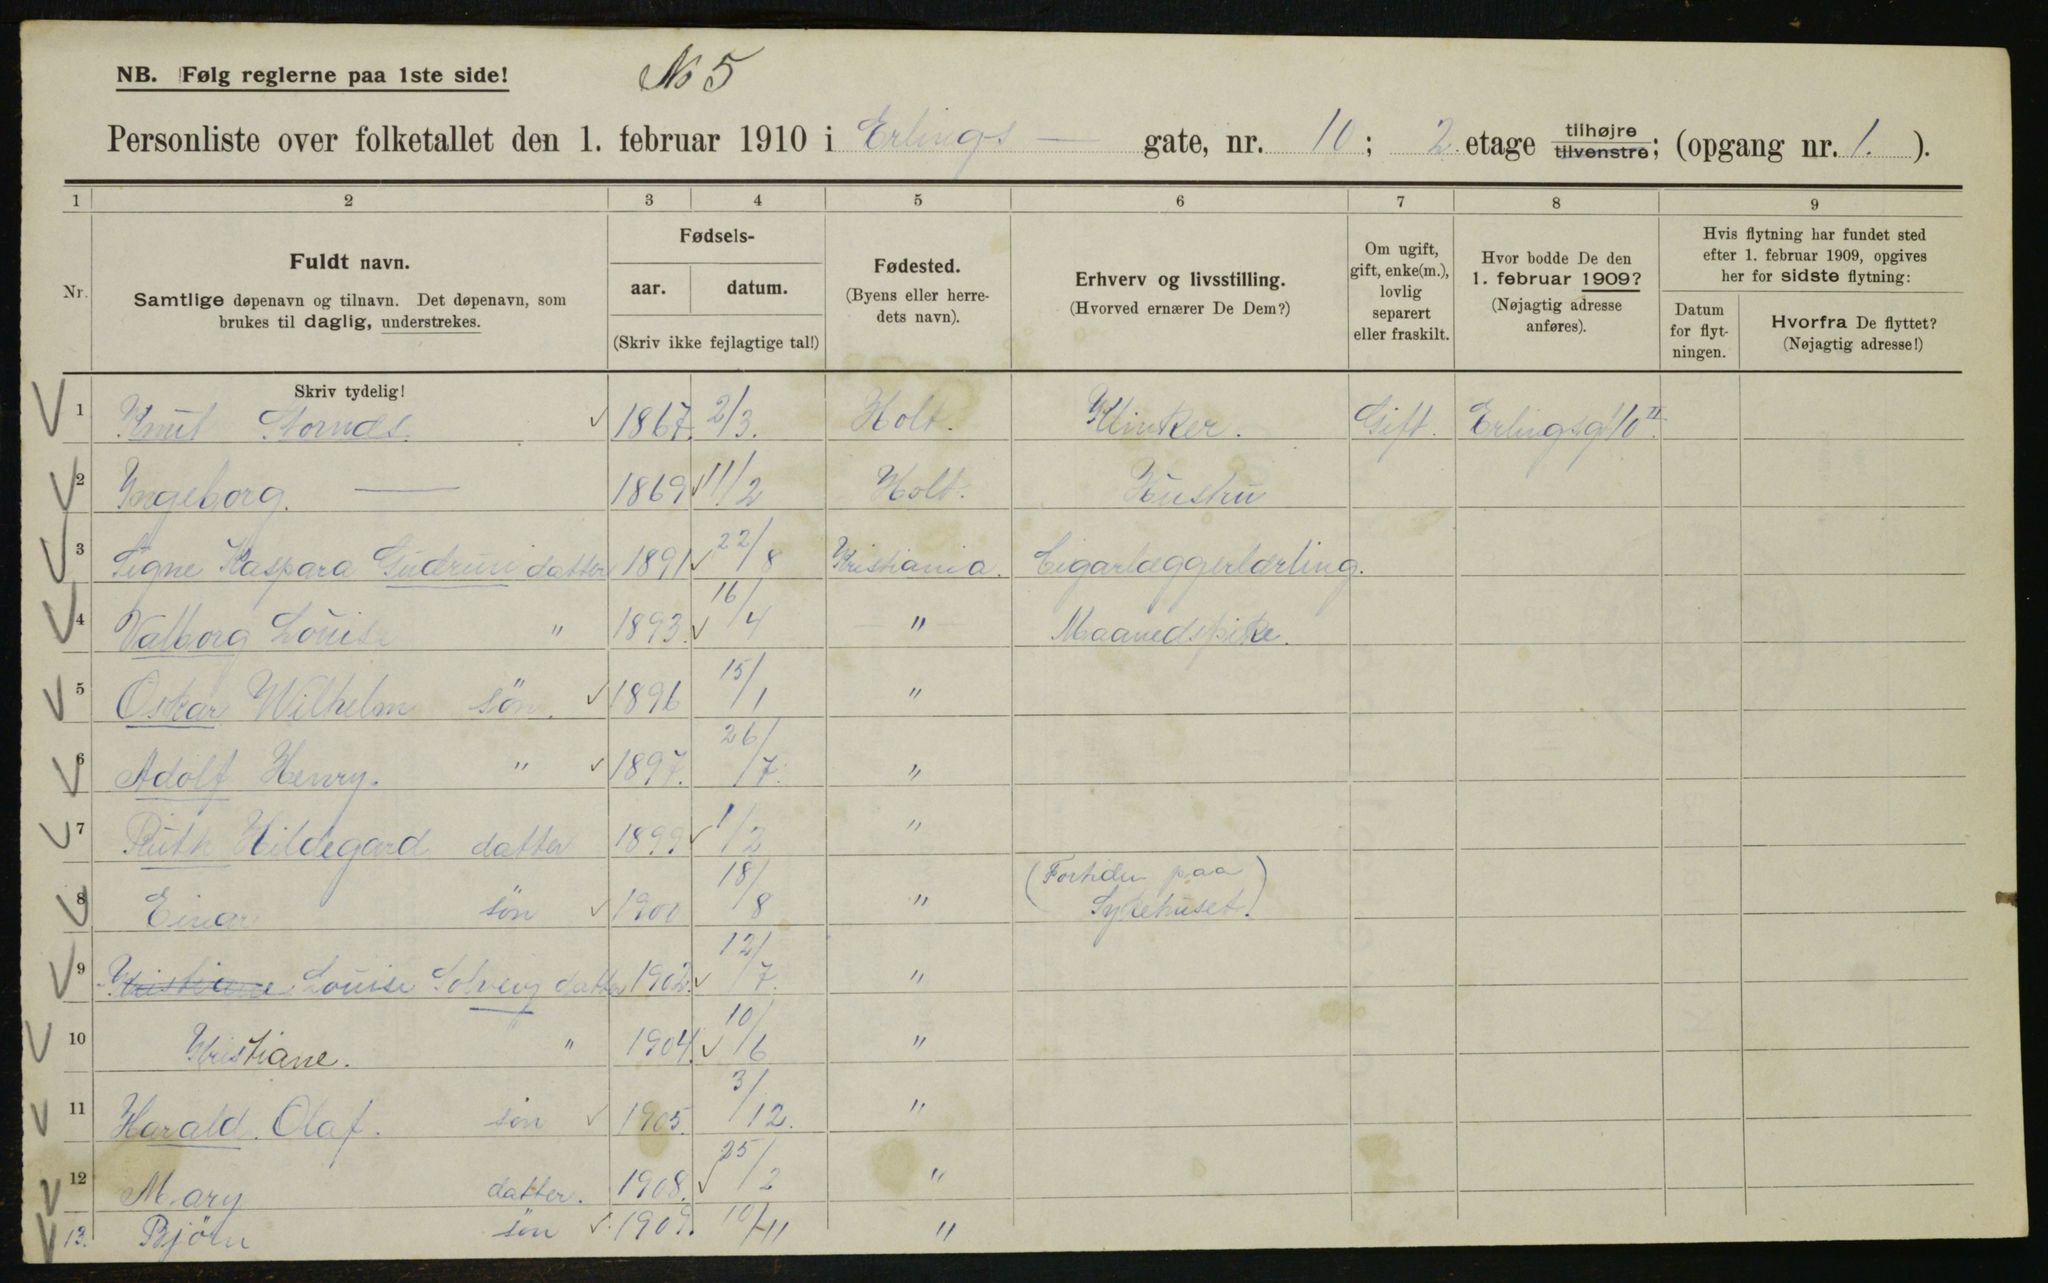 No 5
NB. Følg reglerne paa 1ste side!
Personliste over folketallet den 1. februar 1910 i Erlings — gate, nr. 10; 2 etage tilhøjre tilvenstre; (opgang nr. 1. ).
1 2 3 4 5 6 7 8 9
Nr.
Fuldt navn.
Samtlige døpenavn og tilnavn. Det døpenavn, som
brukes til daglig, understrekes.
Skriv tydelig!
Fødsels-
aar. datum.
(Skriv ikke fejlagtige tal!)
Fødested.
(Byens eller herre-
dets navn).
Erhverv og livsstilling.
(Hvorved ernærer De Dem?)
Om ugift,
gift, enke(m.),
lovlig
separert
eller fraskilt.
Hvor bodde De den
1. februar 1909?
(Nøjagtig adresse
anføres).
Hvis flytning har fundet sted
efter 1. februar 1909, opgives
her for sidste flytning:
Datum
for flyt-
ningen.
Hvorfra De flyttet?
(Nøjagtig adresse!)
1 Knut 1867. 2/3. Holt. Klinker. Gift. Erlingsg. 10 II.
2 Ingeborg. — 1869 11/2 Holt. Hustru
3 Signe Kaspara Gudrun datter 1891 22/8 Kristiania. Cigarlæggerlærling.
4 Valborg Louise " 1893. 16/4 — " — Maanedspike.
5 Oskar Wilhelm søn. 1896 15/1 "
6 Adolf Henry. " 1897. 26/7. "
7 Ruth Hildegard datter 1899 1/2 "
8 Einar søn 1900 18/8 " (Fortiden paa
Sykehuset.)
9 Kristiane Louise Solveig datter 1902. 12/7. "
10 Kristiane. " 1904. 10/6 "
11 Harald Olaf. søn 1905. 3/12. "
12 Mary datter. 1908. 25/2 "
13. Bjørn søn 1909. 10/11 "